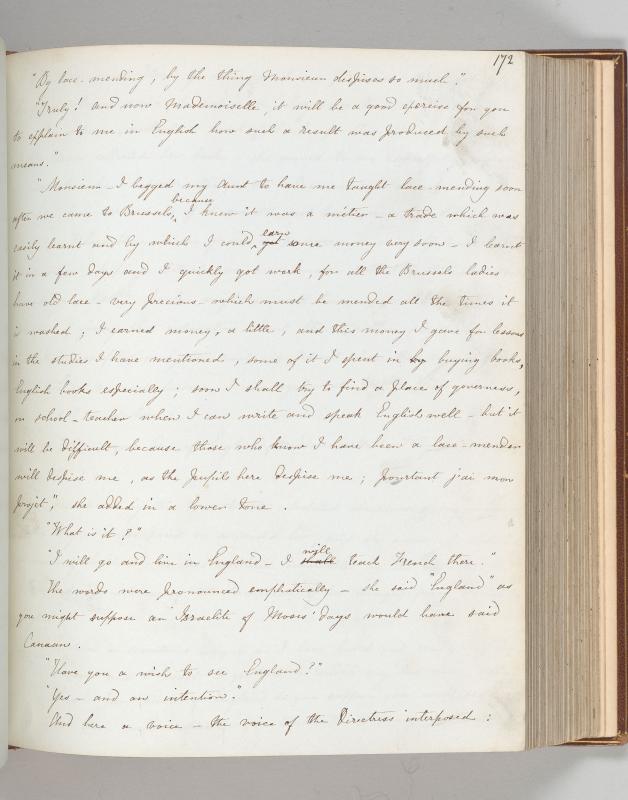 172
"By lace-mending; by the thing Monsieur despises so much."
"Truly! and now Mademoiselle, it will be a good exercise for you
to explain to me in English how such a result was produced by such
means."
"Monsieur – I begged my Aunt to have me taught lace-mending soon
because
after we came to Brussels, I knew it was a métier – a trade which was
earn
easily learnt and by which I could get some money very soon – I learnt
it in a few days and I quickly got work, for all the Brussels ladies
have old lace – very precious – which must be mended all the times it
is washed; I earned money, a little, and this money I gave for lessons
in the studies I have mentioned, some of it I spent in by buying books,
English books especially; soon I shall try to find a place of governess,
or school-teacher when I can write and speak English well – but it
will be difficult, because those who know I have been a lace-mender
will despise me, as the pupils here despise me; pourtant j'ai mon
projet", she added in a lower tone.
"What is it?"
will
"I will go and live in England – I shall teach French there."
The words were pronounced emphatically – she said "England" as
you might suppose an Israelite of Moses' days would have said
Canaan.
"Have you a wish to see England?"
"Yes – and an intention."
And here a voice – the voice of the Directress interposed: